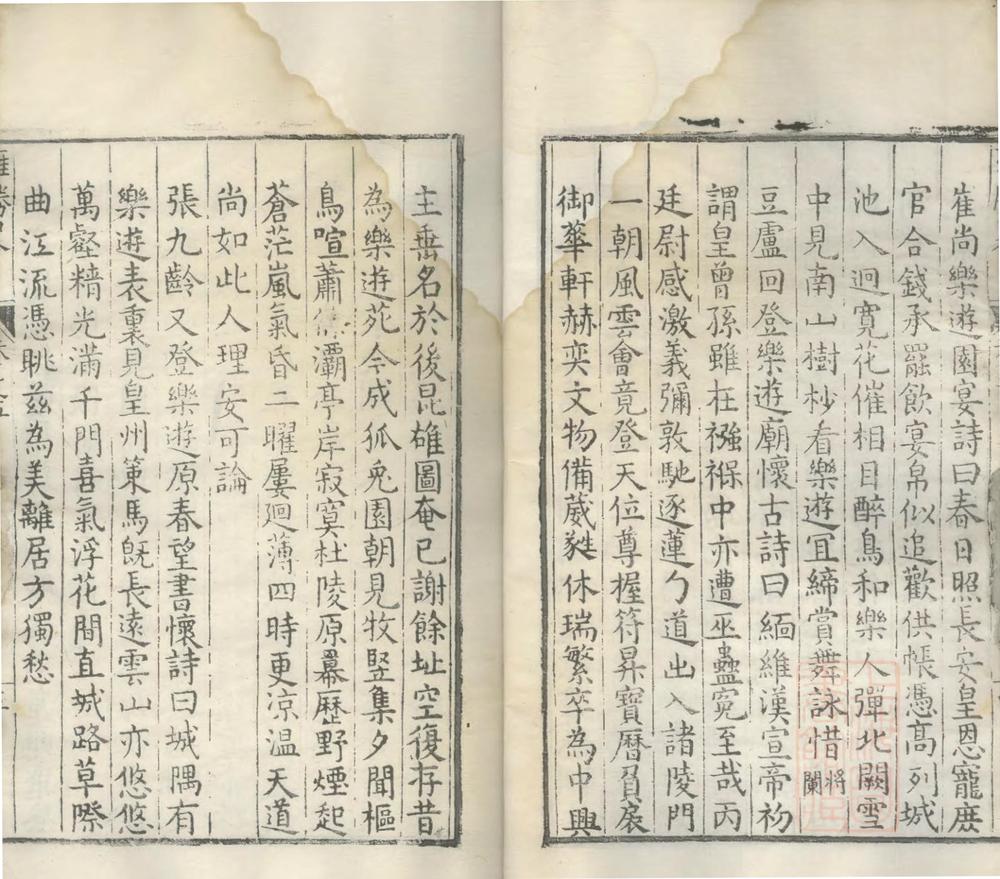 崔尚樂遊園宴詩曰春日照長安皇恩寵庶
官合錢承罷飲宴帛似追歡供帳憑高列城
池入迥寬花催相目醉鳥和樂人彈北闕雪
中見南山樹杪看樂遊冝締賞舞詠惜將闌
豆盧回登樂遊廟懷古詩曰緬維漢宣帝初
謂皇曾孫雖在襁褓中亦遭巫蠱寃至哉丙
廷尉感激義彌敦馳逐蓮勺道出入諸陵門
一朝風雲會竟登天位尊握符昇寶曆負扆
御華軒赫奕文物備葳蕤休瑞繁卒為中興
主垂名於後昆雄圖奄已謝餘址空復存昔
為樂遊苑今成狐兎園朝見牧竪集夕聞樞
鳥喧蕭條灞亭岸寂寞杜陵原羃歷野煙起
蒼茫嵐氣昏二曜屢迴薄四時更凉温天道
尚如此人理安可論
張九齡又登樂遊原春望書懷詩曰城隅有
樂遊表裏見皇州策馬旣長遠雲山亦悠悠
萬壑精光滿千門喜氣浮花間直城路草際
曲江流憑眺兹為美離居方獨愁